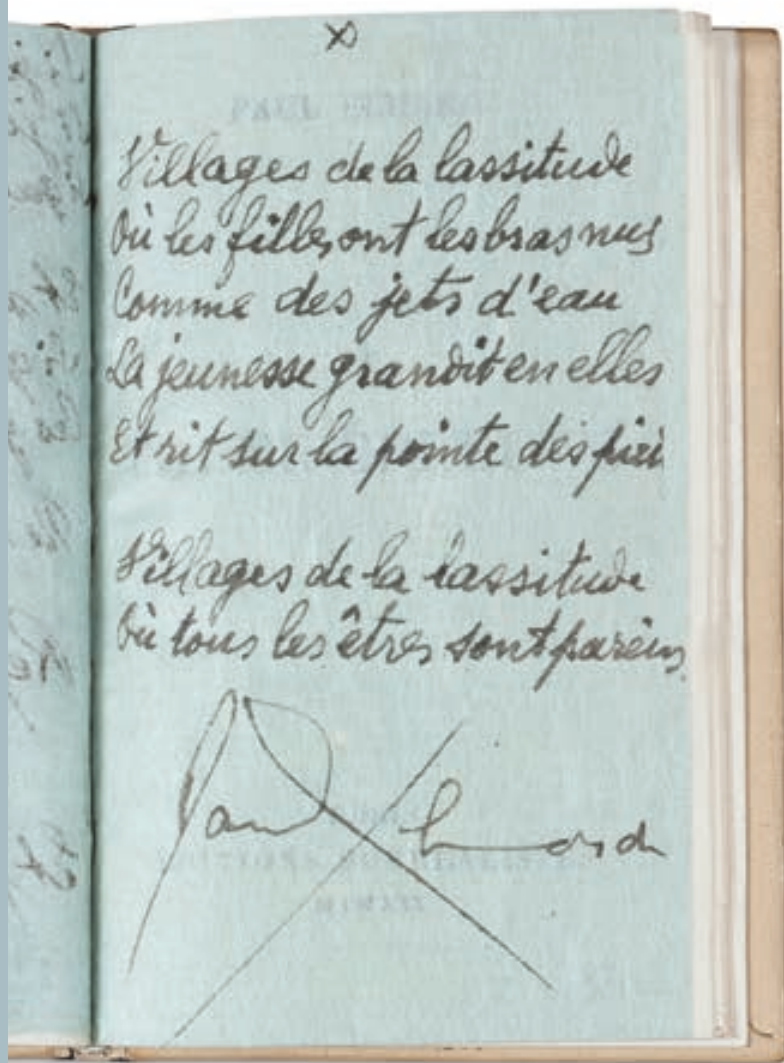 x
Villages de la lassitude
Où les filles ont les bras nus
Comme des jets d'eau
La jeunesse grandit en elles
Et rit sur la pointe des pieds
Villages de la lassitude
Où tous les êtres sont pareils
Paul Eluard
PAUL ELUARD
EDITIONS SURREALISTES